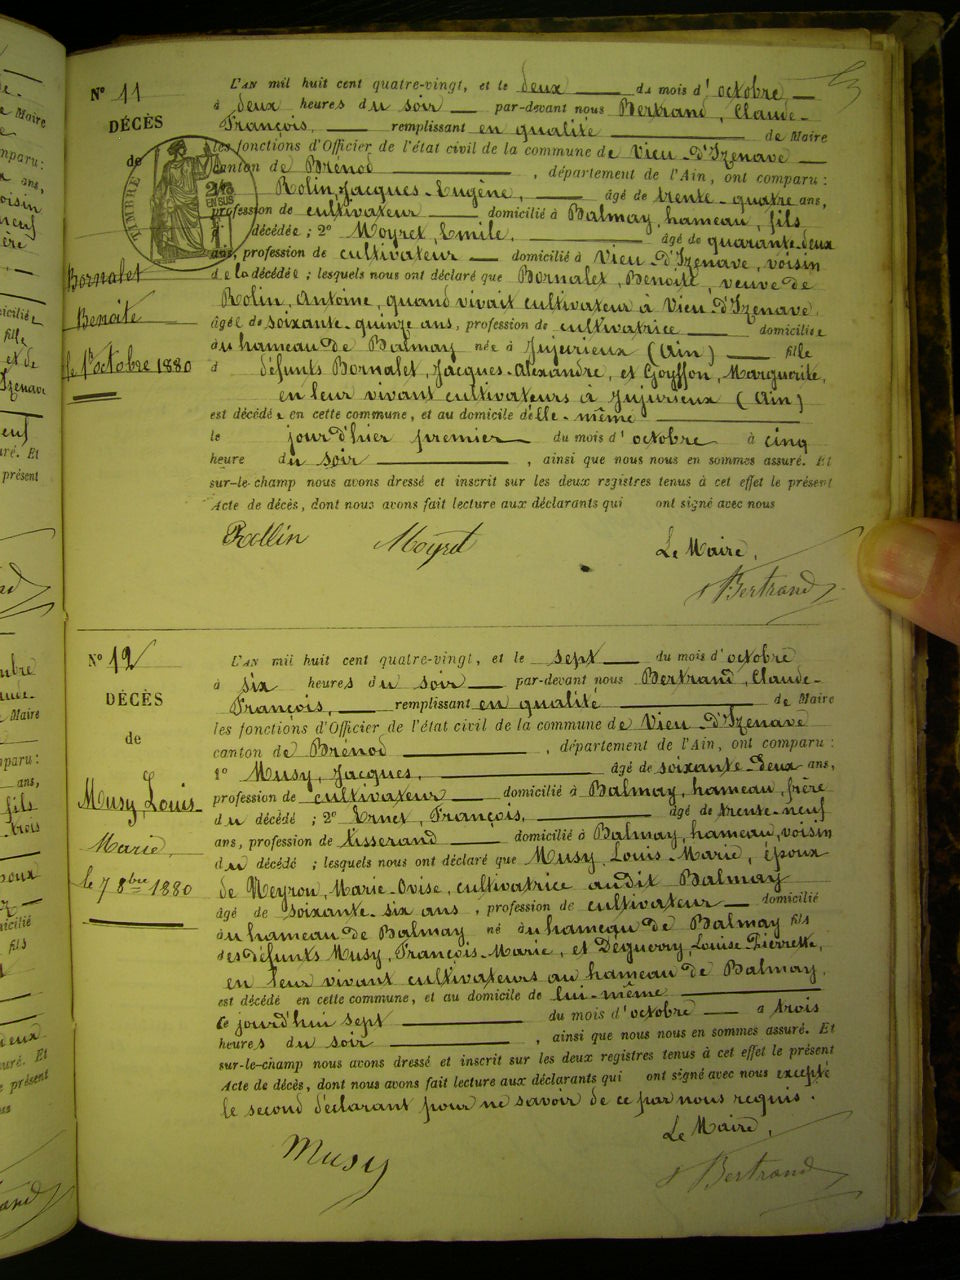 N° 11
DÉCÈS
de
TIMBRE
2/10 EN SUS
Bornalet
Benoite
le 1er octobre 1880
L'AN mil huit cent quatre-vingt, et le deux du mois d'octobre
à deux heures du soir par-devant nous Bertrand, Claude-
François, remplissant en qualité de Maire
les fonctions d'Officier de l'état civil de la commune de Vieu-d'Izenave
canton de Brénod, département de l'Ain, ont comparu :
Rolin, Jacques-Eugène, âgé de trente-quatre ans,
profession de cultivateur domicilié à Balmay, hameau, fils
décédée ; 2° Moyret, Emile, âgé de quarante-deux
ans, profession de cultivateur domicilié à Vieu d'Izenave, voisin
de la décédée ; lesquels nous ont déclaré que Bornalet, Benoite, veuve de
Rolin, Antoine, quand vivait cultivateur à Vieu d'Izenave
âgée de soixante-quinze ans, profession de cultivatrice domiciliée
au hameau de Balmay née à Jujurieux (Ain) fille
d défunts Bornalet, Jacques-Alexandre, et Goyffon, Marguerite,
en leur vivant cultivateurs à Jujurieux (Ain)
est décédée en cette commune, et au domicile d'elle-même
le jour d'hier premier du mois d'octobre à cinq
heure du soir, ainsi que nous nous en sommes assuré. Et
sur-le-champ nous avons dressé et inscrit sur les deux registres tenus à cet effet le présent
Acte de décès, dont nous avons fait lecture aux déclarants qui ont signé avec nous
Rollin Moyret Le Maire,
Bertrand
N° 12
DÉCÈS
de
Musy, Louis-
Marie,
le 7 8bre 1880
L'AN mil huit cent quatre-vingt, et le sept du mois d'octobre
à six heures du soir par-devant nous Bertrand, Claude-
François, remplissant en qualité de Maire
les fonctions d'Officier de l'état civil de la commune de Vieu-d'Izenave
canton de Brénod, département de l'Ain, ont comparu :
1° Musy, Jacques, âgé de soixante-deux ans,
profession de cultivateur domicilié à Balmay, hameau, frère
du décédé ; 2° Ernet, François, âgé de trente-neuf
ans, profession de tisserand domicilié à Balmay, hameau, voisin
du décédé ; lesquels nous ont déclaré que Musy, Louis-Marie, époux
de Neyron, Marie-Ovise, cultivatrice audit Balmay
âgé de soixante-six ans, profession de cultivateur domicilié
au hameau de Balmay né au hameau de Balmay fils
des défunts Musy, François-Marie, et Deguerry, Louise-Pierrette,
en leur vivant cultivateurs au hameau de Balmay,
est décédé en cette commune, et au domicile de lui-même
ce jourd'hui sept du mois d'octobre à trois
heures du soir, ainsi que nous nous en sommes assuré. Et
sur-le-champ nous avons dressé et inscrit sur les deux registres tenus à cet effet le présent
Acte de décès, dont nous avons fait lecture aux déclarants qui ont signé avec nous excepté
le second déclarant pour ne savoir de ce par nous requis.
Musy Le Maire,
Bertrand